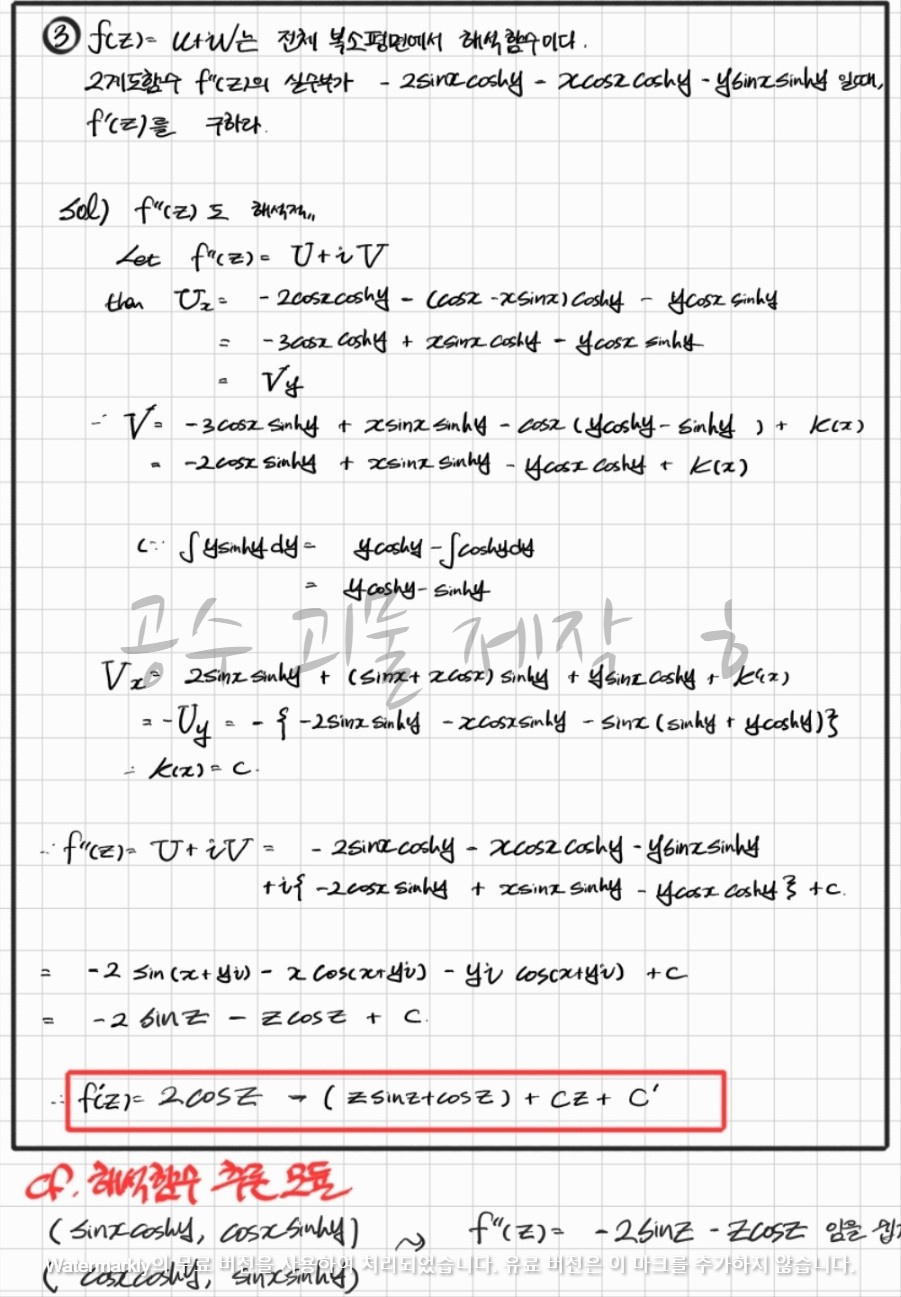 ③ f(z)= u+iv는 전체 복소평면에서 해석함수이다.
2계도함수 f''(z)의 실수부가 - 2sinx coshy - xcosx coshy - ysinx sinhy 일때,
f'(z)를 구하라.
sol) f''(z) 도 해석적,,
Let f''(z)= U+iV
then Ux= -2cosx coshy - (cosx -xsinx) coshy - ycosx sinhy
= -3cosx coshy + xsinx coshy - ycosx sinhy
= Vy
∴ V= -3cosx sinhy + xsinx sinhy - cosx (ycoshy - sinhy ) + k(x)
= -2cosx sinhy + xsinx sinhy - ycosx coshy + k(x)
(∵ ∫ysinhy dy= ycoshy -∫coshy dy
= ycoshy- sinhy
공수 괴물 제작 ㅎ
Vx= 2sinx sinhy + (sinx+ xcosx) sinhy + ysinx coshy + k'(x)
= -Uy = - { -2sinx sinhy -xcosx sinhy - sinx (sinhy + ycoshy)}
∴ k(x)= c.
∴ f''(z)= U+iV = - 2sinx coshy - xcosx coshy - ysinx sinhy
+i{ -2cosx sinhy + xsinx sinhy - ycosx coshy } +c.
= -2 sin(x+yi) - x cos(x+yi) - yi cos(x+yi) +c
= -2 sinz - zcosz + c.
∴ f'(z)= 2cosz - (zsinz+cosz) + cz + c'
cf. 해석함수 추론 모듈
(sinx coshy, cosx sinhy) ⤳ f''(z)= -2sinz - zcosz 임을 쉽게
Watermarkly의 무료 버전을 사용하여 처리되었습니다. 유료 버전은 이 마크를 추가하지 않습니다.
( cosx coshy, sinx sinhy)